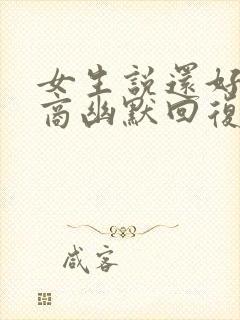 女生說還好
高幽默回復
咸客